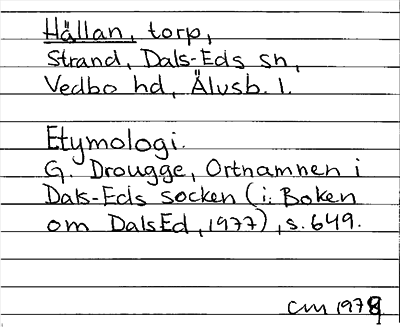 Hällan, torp,
Strand, Dals-Eds sn,
Vedbo hd, Älvsb. l.
Etymologi.
G. Drougge, Ortnamnen i
Dals-Eds socken (i: Boken
om DalsEd, 1977), s. 649.
CM 1979